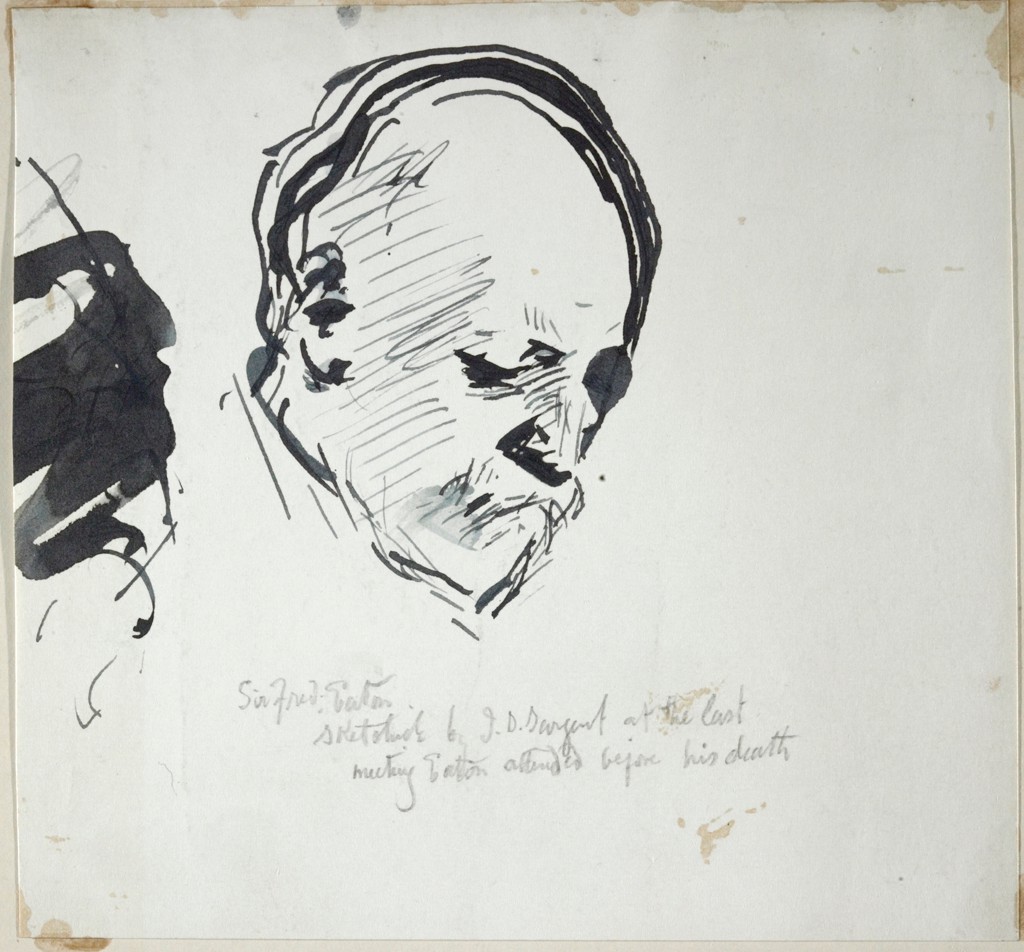 Sir Fred: Eaton
sketched by J. S. Sargent at the last
meeting Eaton attended before his death